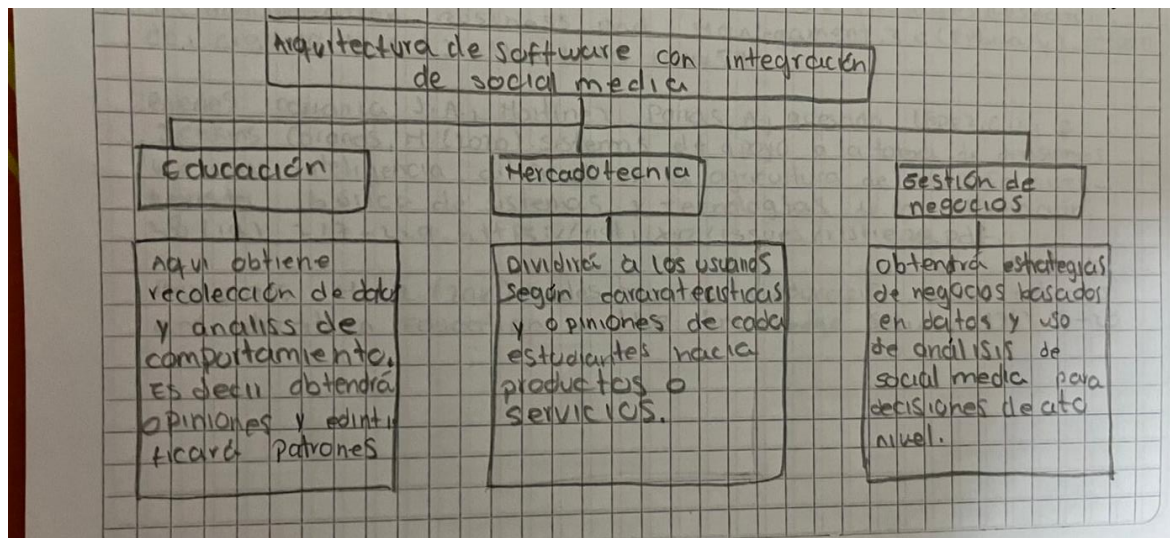 Arquitectura de software con integración
de social media
Educación
Mercadotecnia
Gestión de
negocios
Aqui obtiene
recolección de datos
y analiss de
comportamiento.
Es decir obtendrá
opiniones y edinti
ficará patrones
Dividirá a los usuarios
según cararateristicas
y opiniones de cada
estudiantes hacia
productos o
servicios.
Obtendrá estrategias
de negocios basados
en datos y uso
de análisis de
social media para
decisiones de alto
nivel.